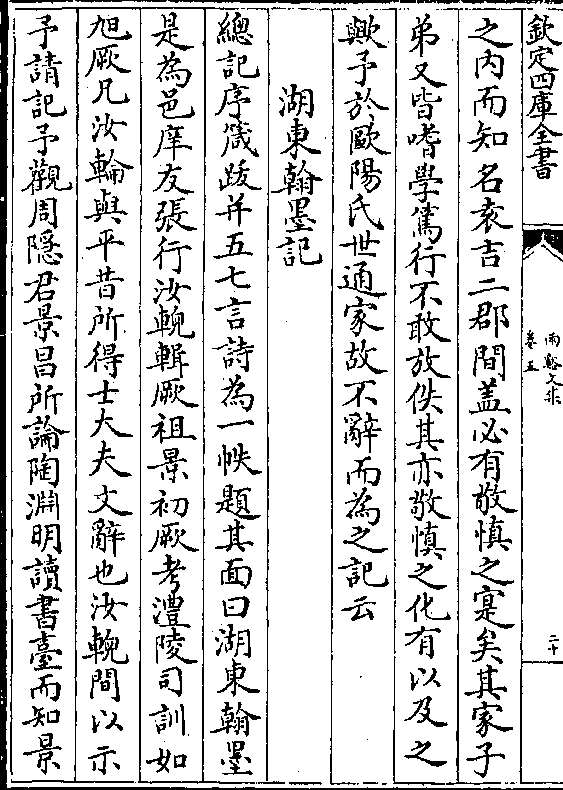 欽定四庫全書
兩谿文集
卷五
二十
之内而知名袁吉二郡間蓋必有敬慎之寔矣其家子
弟又皆嗜學篤行不敢放佚其亦敬慎之化有以及之
歟予於歐陽氏世通家故不辭而為之記云
湖東翰墨記
總記序箴跋并五七言詩為一帙題其面曰湖東翰墨
是為邑庠友張行汝輓輯厥祖景初厥考澧陵司訓如
旭厥凡汝輪與平昔所得士大夫文辭也汝輓間以示
予請記予觀周隱君景昌所論陶淵明讀書臺而知景